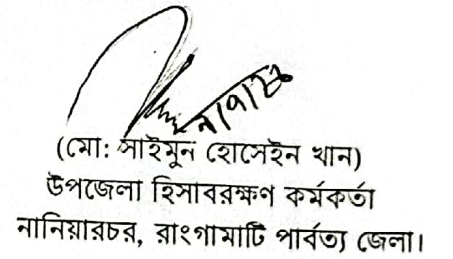 (মো: সাইমুন হোসেইন খান)
উপজেলা হিসাবরক্ষণ কর্মকর্তা
নানিয়ারচর, রাংগামাটি পার্বত্য জেলা।